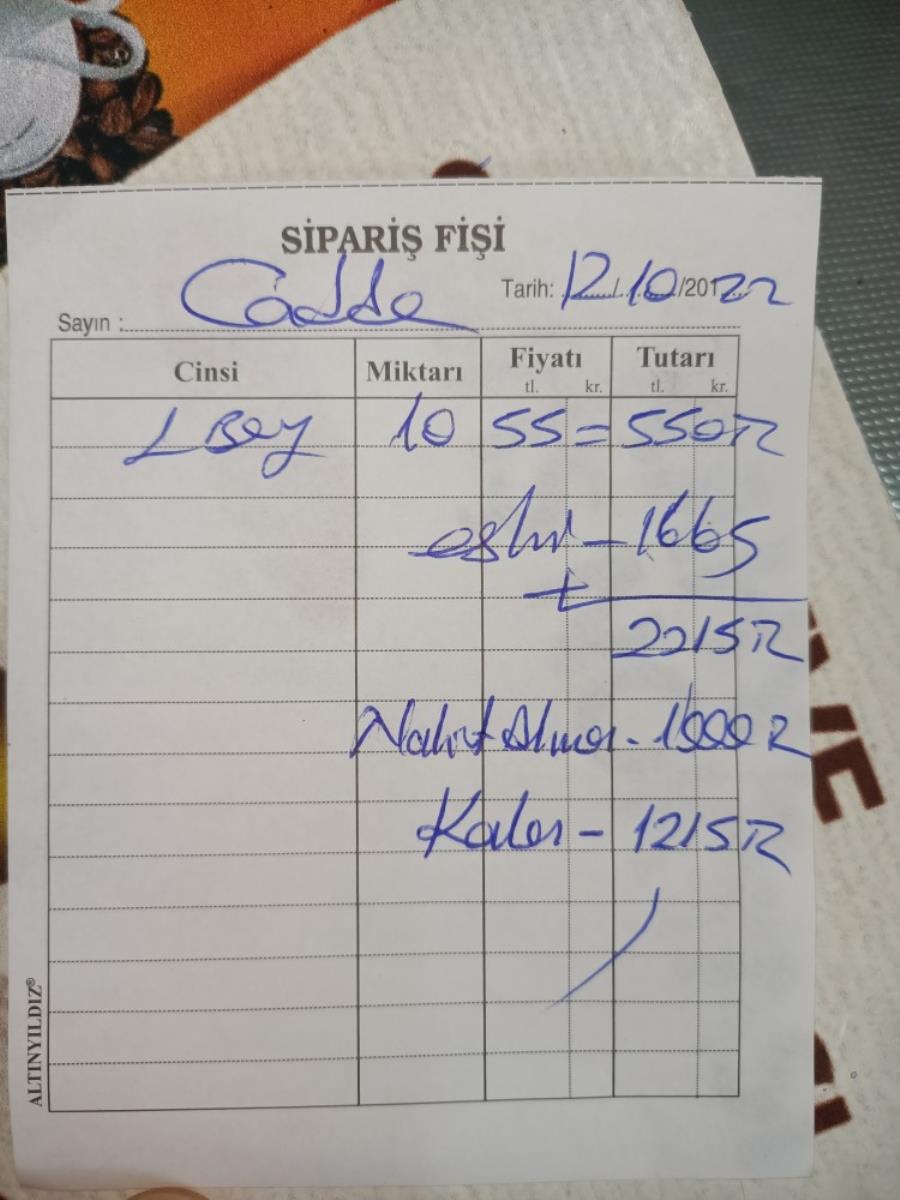 SİPARİŞ FİŞİ
Tarih: 12/10/20122
Sayın : Cadde
Cinsi Miktarı Fiyatı Tutarı
tl. kr. tl. kr.
L Bey 10 55 = 550 TL
eski - 1665
+
2215 TL
Nakit Alınan - 1000 TL
Kalan - 1215 TL
ALTINYILDIZ®